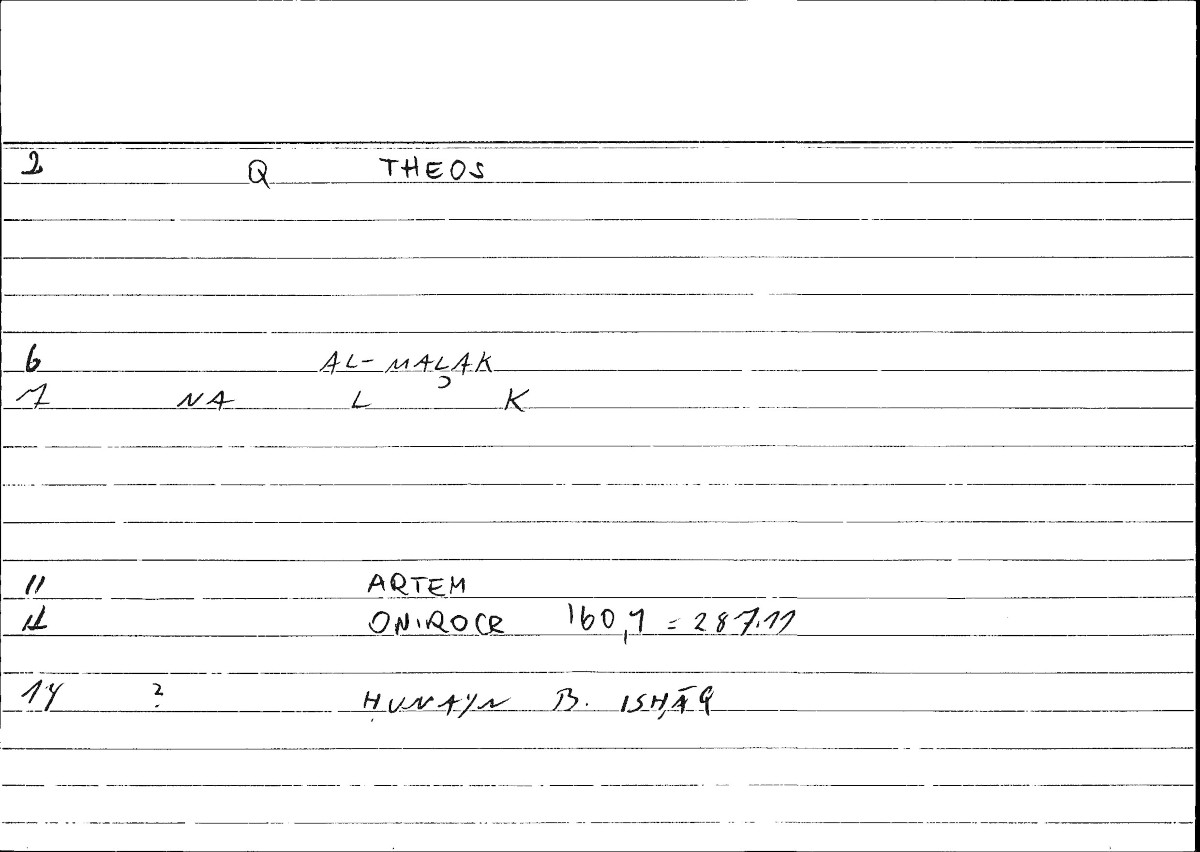 2 Q THEOS
6 AL-MALAK
7 NA L K
11 ARTEM
12 ONIROCR 160,1 = 287.11
14 ? ḤUNAYN B. ISḤĀQ